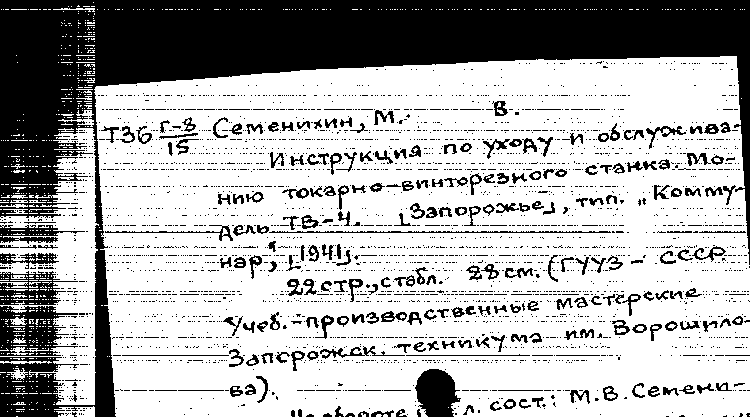 Т36 Г-8/15 Семенихин, М. В.
Инструкция по уходу и обслужива-
нию токарно-винторезного станка. Мо-
дель ТВ-4. [Запорожье], тип. „Комму-
нар", [1941].
22 стр., с табл. 28 см. (ГУУЗ - СССР
Учеб.-производственные мастерские
Запорожск. техникума им. Ворошило-
ва).
На обороте л. сост.: М.В. Семени-